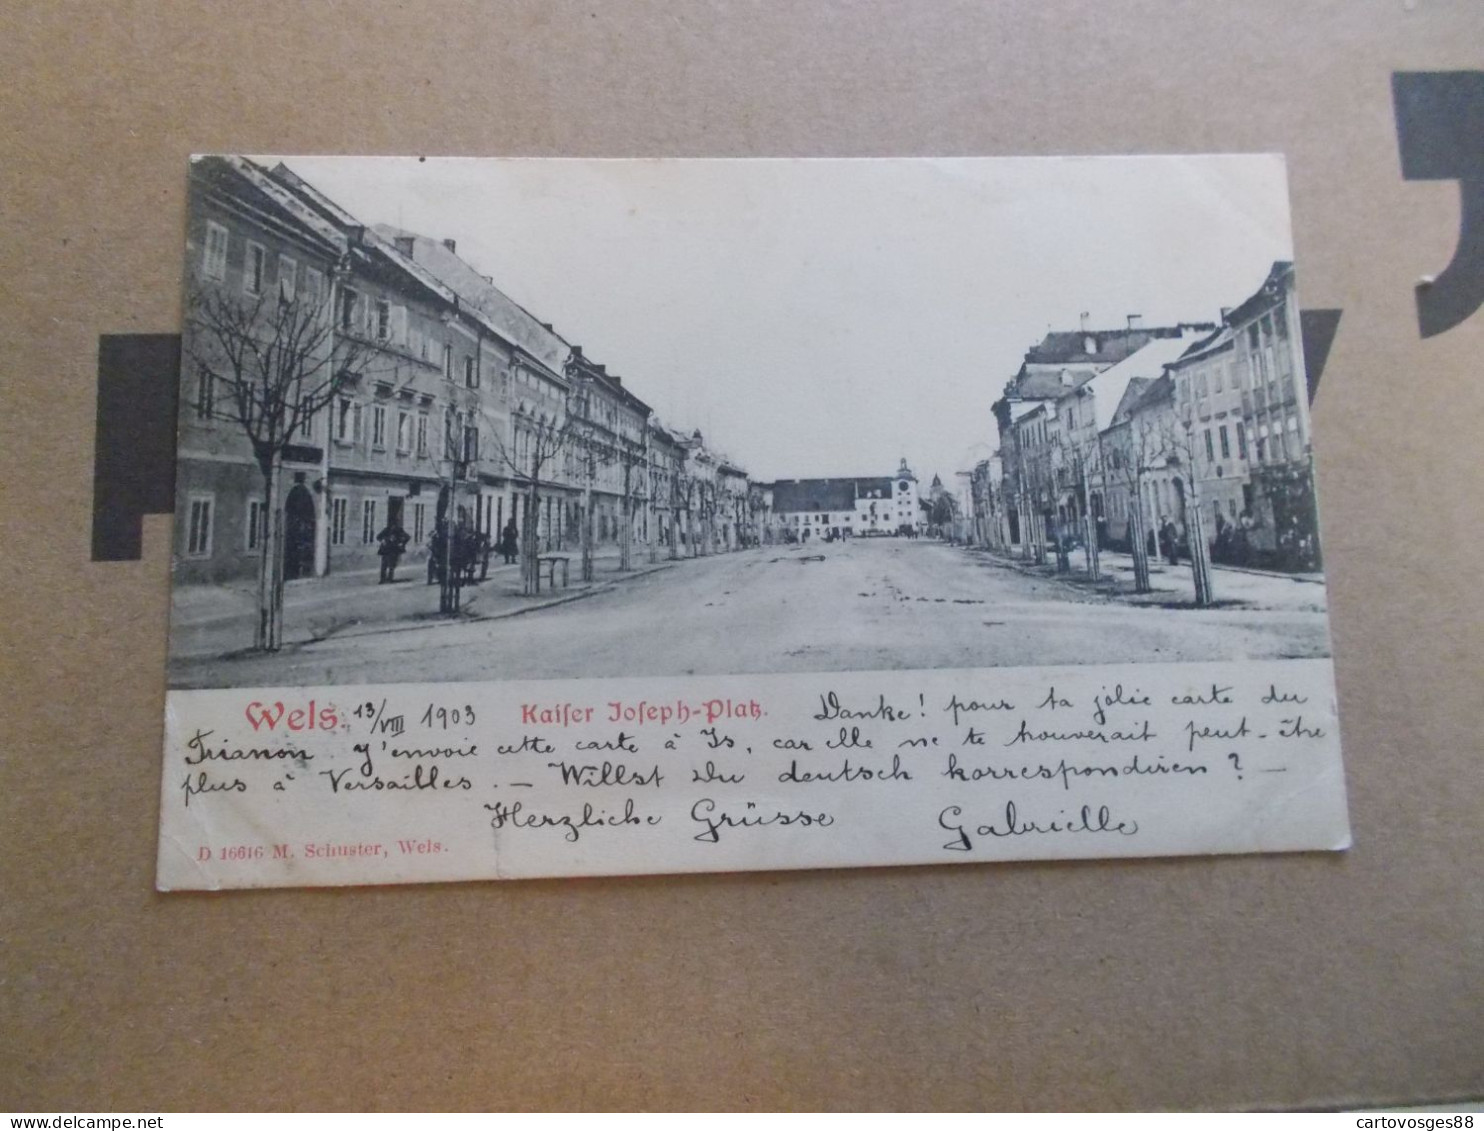 Wels. 13/VIII 1903 Kaiser Joseph-Platz. Danke! pour ta jolie carte du
Trianon. J'envoie cette carte à Is, car elle ne te trouverait peut-être
plus à Versailles. — Willst Du deutsch korrespondiren? —
Herzliche Grüsse Gabrielle
D 16616 M. Schuster, Wels.
cartovosges88